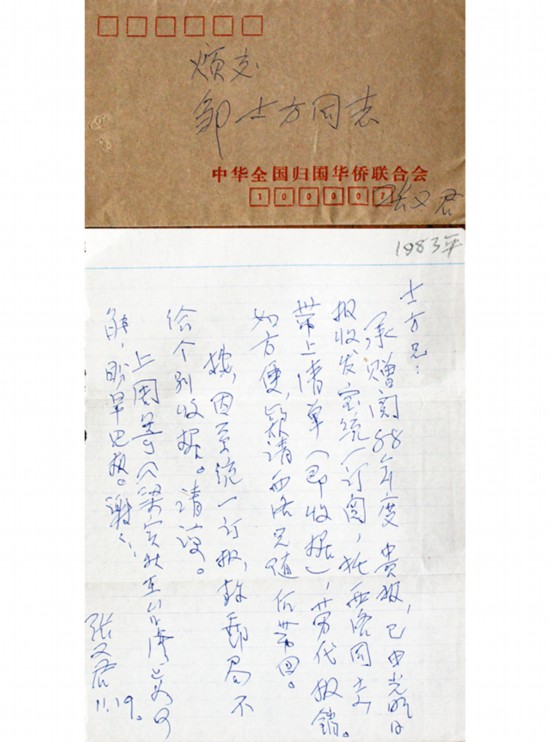 烦交
邹士方同志
中华全国归国华侨联合会
100002
张又君
1983年
士方兄:
承赠阅88年度 贵报,已由光明日
报收发室统一订阅,托西洛同志
带上清单(即收据),劳代报销。
如方便,款请西洛兄随后带回。
按,因系统一订报,故邮局不
给个别收据。请谅。
上周寄《梁实秋在台湾》文,可
能,盼早见报。谢谢!
张又君
11.19。